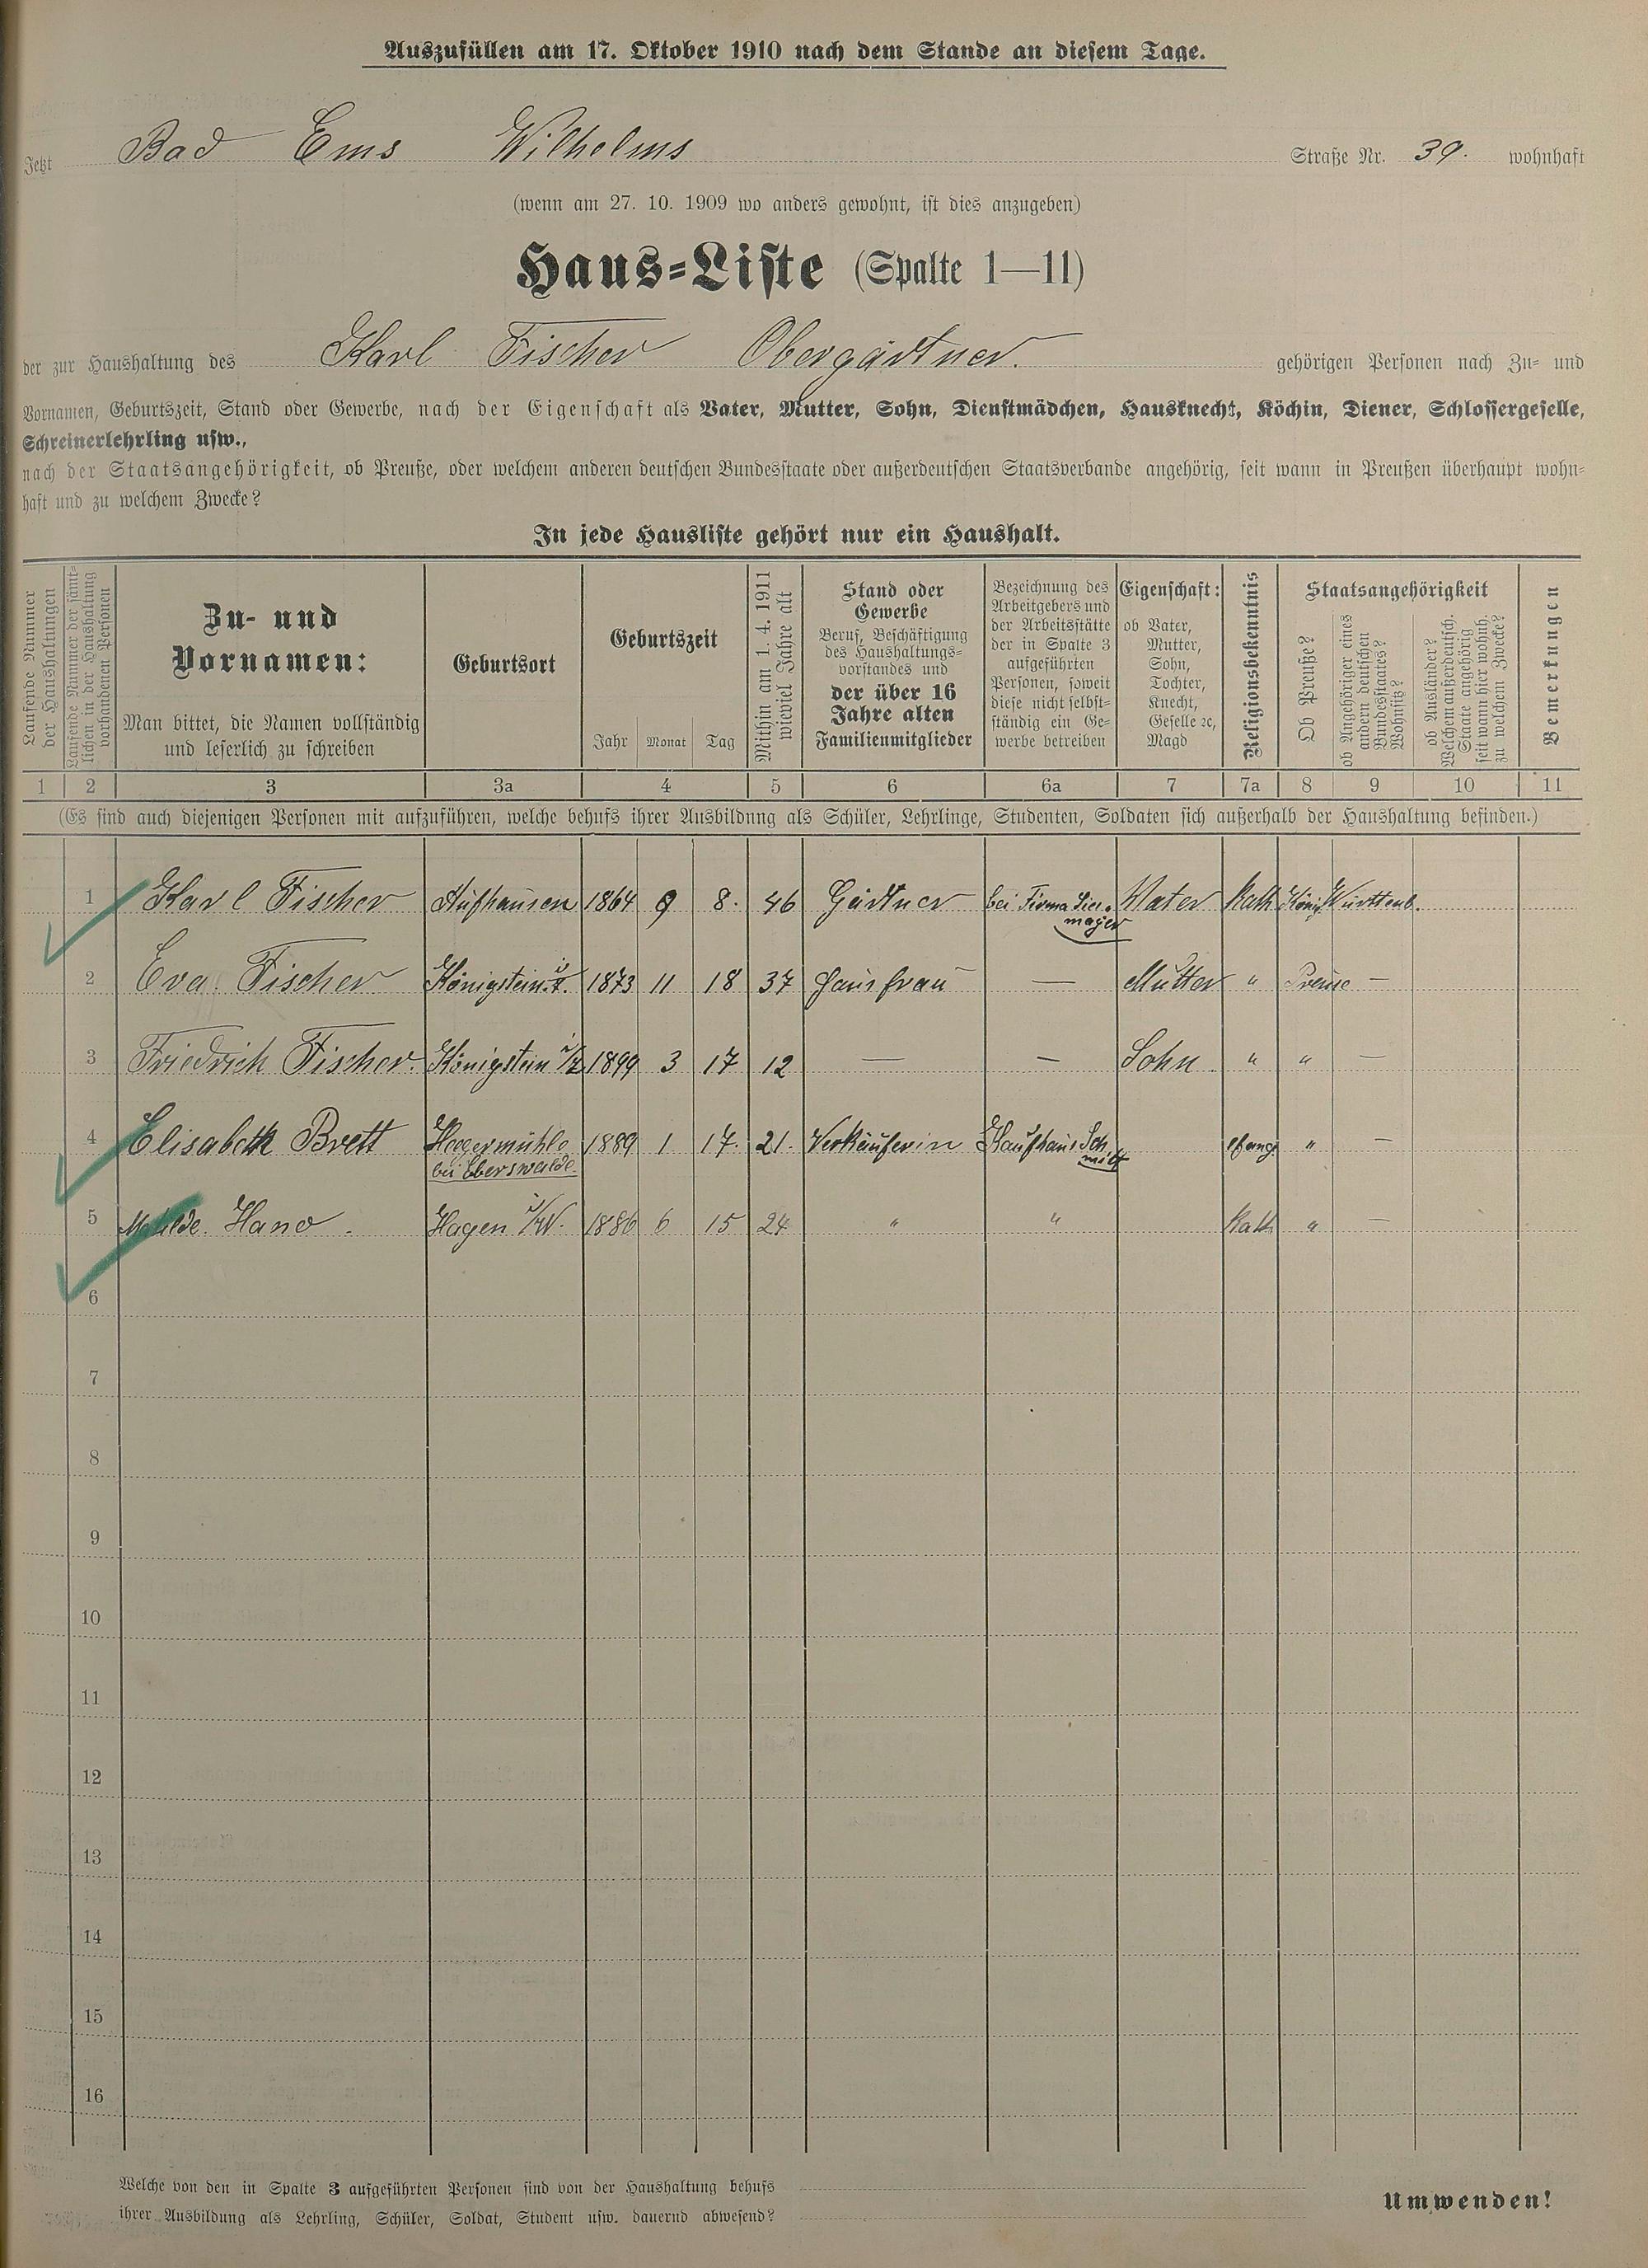 Auszufüllen am 17. Oktober 1910 nach dem Stande an diesem Tage.
Jetzt Bad Ems Wilhelms Straße Nr. 39. wohnhaft
(wenn am 27. 10. 1909 wo anders gewohnt, ist dies anzugeben)
Haus-Liste (Spalte 1—11)
der zur Haushaltung des Karl Fischer Obergärtner. gehörigen Personen nach Zu- und
Vornamen, Geburtszeit, Stand oder Gewerbe, nach der Eigenschaft als Vater, Mutter, Sohn, Dienstmädchen, Hausknecht, Köchin, Diener, Schlossergeselle,
Schreinerlehrling usw.,
nach der Staatsangehörigkeit, ob Preuße, oder welchem anderen deutschen Bundesstaate oder außerdeutschen Staatsverbande angehörig, seit wann in Preußen überhaupt wohn-
haft und zu welchem Zwecke?
In jede Hausliste gehört nur ein Haushalt.
Laufende Nummer
der Haushaltungen
Laufende Nummer der sämt-
lichen in der Haushaltung
vorhandenen Personen
Zu- und
Vornamen:
Man bittet, die Namen vollständig
und leserlich zu schreiben
Geburtsort
Geburtszeit
Jahr Monat Tag
Mithin am 1. 4. 1911
wieviel Jahre alt
Stand oder
Gewerbe
Beruf, Beschäftigung
des Haushaltungs-
vorstandes und
der über 16
Jahre alten
Familienmitglieder
Bezeichnung des
Arbeitgebers und
der Arbeitsstätte
der in Spalte 3
aufgeführten
Personen, soweit
diese nicht selbst-
ständig ein Ge-
werbe betreiben
Eigenschaft:
ob Vater,
Mutter,
Sohn,
Tochter,
Knecht,
Geselle ꝛc,
Magd
Religionsbekenntnis
Staatsangehörigkeit
Ob Preuße?
ob Angehöriger eines
andern deutschen
Bundesstaates?
Wohnsitz?
ob Ausländer?
Welchem außerdeutsch.
Staate angehörig
seit wann hier wohnh.
zu welchem Zwecke?
Bemerkungen
1 2 3 3a 4 5 6 6a 7 7a 8 9 10 11
(Es sind auch diejenigen Personen mit aufzuführen, welche behufs ihrer Ausbildung als Schüler, Lehrlinge, Studenten, Soldaten sich außerhalb der Haushaltung befinden.)
1 Karl Fischer Aufhausen 1864 9 8. 46 Gärtner bei Firma Vater Kath König Württemb.
2 Eva Fischer Königstein 1873 11 18 37 Hausfrau — Mutter " Preuse —
3 Friedrich Fischer. Königstein i/T 1899 3 17 12 — — Sohn " " —
4 Elisabeth Brett Hegermühle 1889 1 17. 21. Verkäuferin Kaufhaus Sch
bei Eberswalde. mitt evang " —
5 Hano. Hagen i/W. 1886 6 15 24 " " Kath " —
6
7
8
9
10
11
12
13
14
15
16
Welche von den in Spalte 3 aufgeführten Personen sind von der Haushaltung behufs
ihrer Ausbildung als Lehrling, Schüler, Soldat, Student usw. dauernd abwesend?
Umwenden!